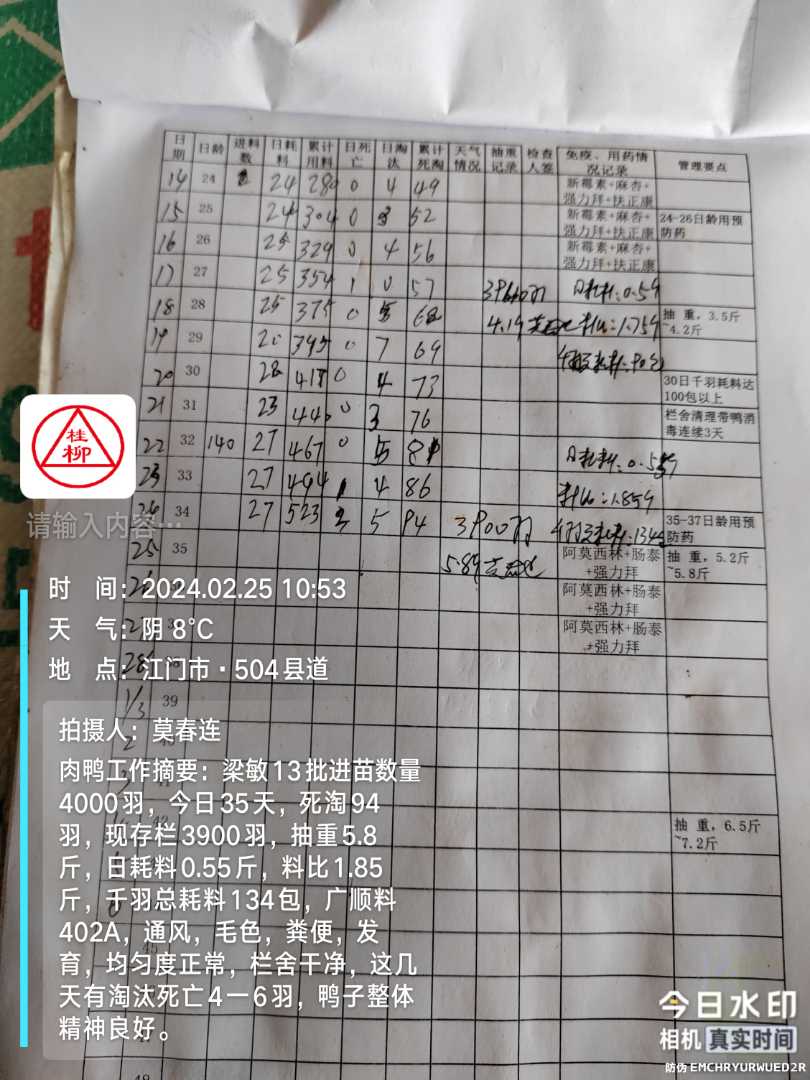 日期 日龄 进料数 日耗料 累计用料 日死亡 日淘汰 累计死淘 天气情况 抽重记录 检查人签 免疫、用药情况记录 管理要点
14 24 24 280 0 4 49 新霉素+麻杏+强力拜+扶正康
15 25 24 304 0 3 52 新霉素+麻杏+强力拜+扶正康 24-26日龄用预防药
16 26 25 329 0 4 56 新霉素+麻杏+强力拜+扶正康
17 27 25 354 1 0 57 日耗料:0.5斤
18 28 25 375 0 5 62 4.1斤 料比:1.75斤 抽 重，3.5斤~4.2斤
19 29 395 0 7 69
20 30 28 418 0 4 73 30日千羽耗料达100包以上
21 31 23 440 0 3 76 栏舍清理带鸭消毒连续3天
22 32 140 27 467 0 5 81 日耗料:0.55斤
23 33 27 494 1 4 86 料比:1.85斤
24 34 27 523 3 5 94 3900羽 千羽总耗料:134包 35-37日龄用预防药
25 35 5.8斤 阿莫西林+肠泰+强力拜 抽 重，5.2斤~5.8斤
26 阿莫西林+肠泰+强力拜
阿莫西林+肠泰+强力拜
28
1/3 39
抽 重，6.5斤~7.2斤
桂柳
请输入内容…
时 间：2024.02.25 10:53
天 气：阴 8℃
地 点：江门市·504县道
拍摄人：莫春连
肉鸭工作摘要：梁敏13批进苗数量
4000羽，今日35天，死淘94
羽，现存栏3900羽，抽重5.8
斤，日耗料0.55斤，料比1.85
斤，千羽总耗料134包，广顺料
402A，通风，毛色，粪便，发
育，均匀度正常，栏舍干净，这几
天有淘汰死亡4一6羽，鸭子整体
精神良好。
今日水印
相机 真实时间
防伪 EMCHRYURWUED2R